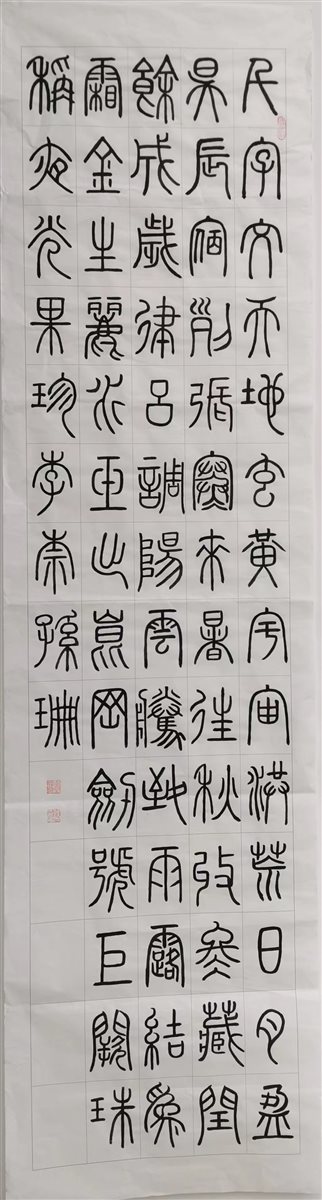 千字文天地玄黃宇宙洪荒日月盈
昃辰宿列張寒來暑往秋收冬藏閏
餘成歲律呂調陽雲騰致雨露結為
霜金生麗水玉出崑岡劍號巨闕珠
稱夜光果珍李柰孫珊